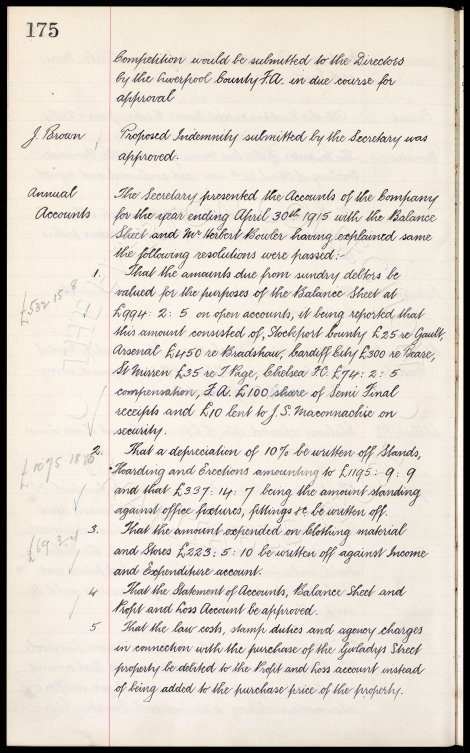 175
Competition would be submitted to the Directors
by the Liverpool County F.A. in due course for
approval
J. Brown
Proposed Indemnity submitted by the Secretary was
approved.
Annual
Accounts
The Secretary presented the Accounts of the Company
for the year ending April 30th 1915 with the Balance
Sheet and Mr Herbert Bowler having explained same
the following resolutions were passed:-
1. That the amounts due from sundry debtors be
£532 15 8
valued for the purposes of the Balance Sheet at
£994: 2: 5 on open accounts, it being reported that
this amount consisted of, Stockport County £25 re Gault,
Arsenal £450 re Bradshaw, Cardiff City £300 re Bease,
St Mirren £35 re T Page, Chelsea F.C. £74: 2: 5
compensation, F.A. £100 share of Semi Final
receipts and £10 lent to J.S. Maconnachie on
security.
2. That a depreciation of 10% be written off Stands,
£1075 18
Hoarding and Erections amounting to £1195: 9: 9
and that £337: 14: 7 being the amount standing
against office fixtures, fittings &c be written off.
3. That the amount expended on Clothing material
£69 3-4
and Stores £223: 5: 10 be written off against Income
and Expenditure account.
4 That the Statement of Accounts, Balance Sheet and
Profit and Loss Account be approved.
5 That the law costs, stamp duties and agency charges
in connection with the purchase of the Gwladys Street
property be debited to the Profit and Loss account instead
of being added to the purchase price of the property.